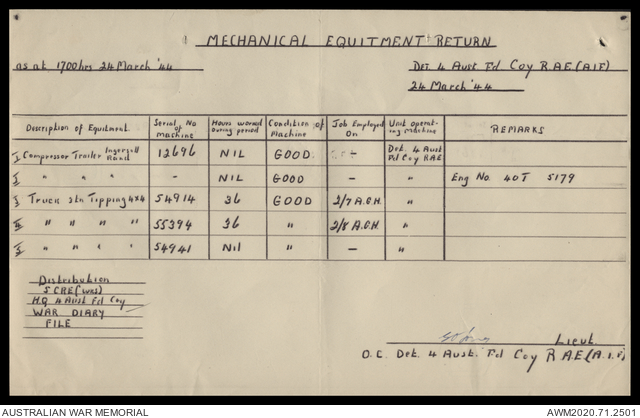 MECHANICAL EQUITMENT RETURN
as at 1700hrs 24 March '44
DET 4 Aust Fd Coy R.A.E.(AIF)
24 March '44
Description of Equitment. Serial No of Machine Hours worked During period Condition of Machine Job Employed On Unit operating Machine REMARKS
I Compressor Trailer Ingersoll Rand 12696 NIL GOOD - Det. 4 Aust Fd Coy RAE
I " " " - NIL GOOD - " Eng No. 40T 5179
I Truck 3tn Tipping 4x4 54914 36 GOOD 2/7 A.G.H. "
II " " " " 55394 36 " 2/8 A.G.H. "
I " " " " 54941 Nil " - "
Distribution
5 CRE (wks)
H.Q 4 Aust Fd Coy
WAR DIARY
FILE
Lieut.
O.C. Det. 4 Aust. Fd Coy R.A.E.(A.I.F)
AUSTRALIAN WAR MEMORIAL
AWM2020.71.2501